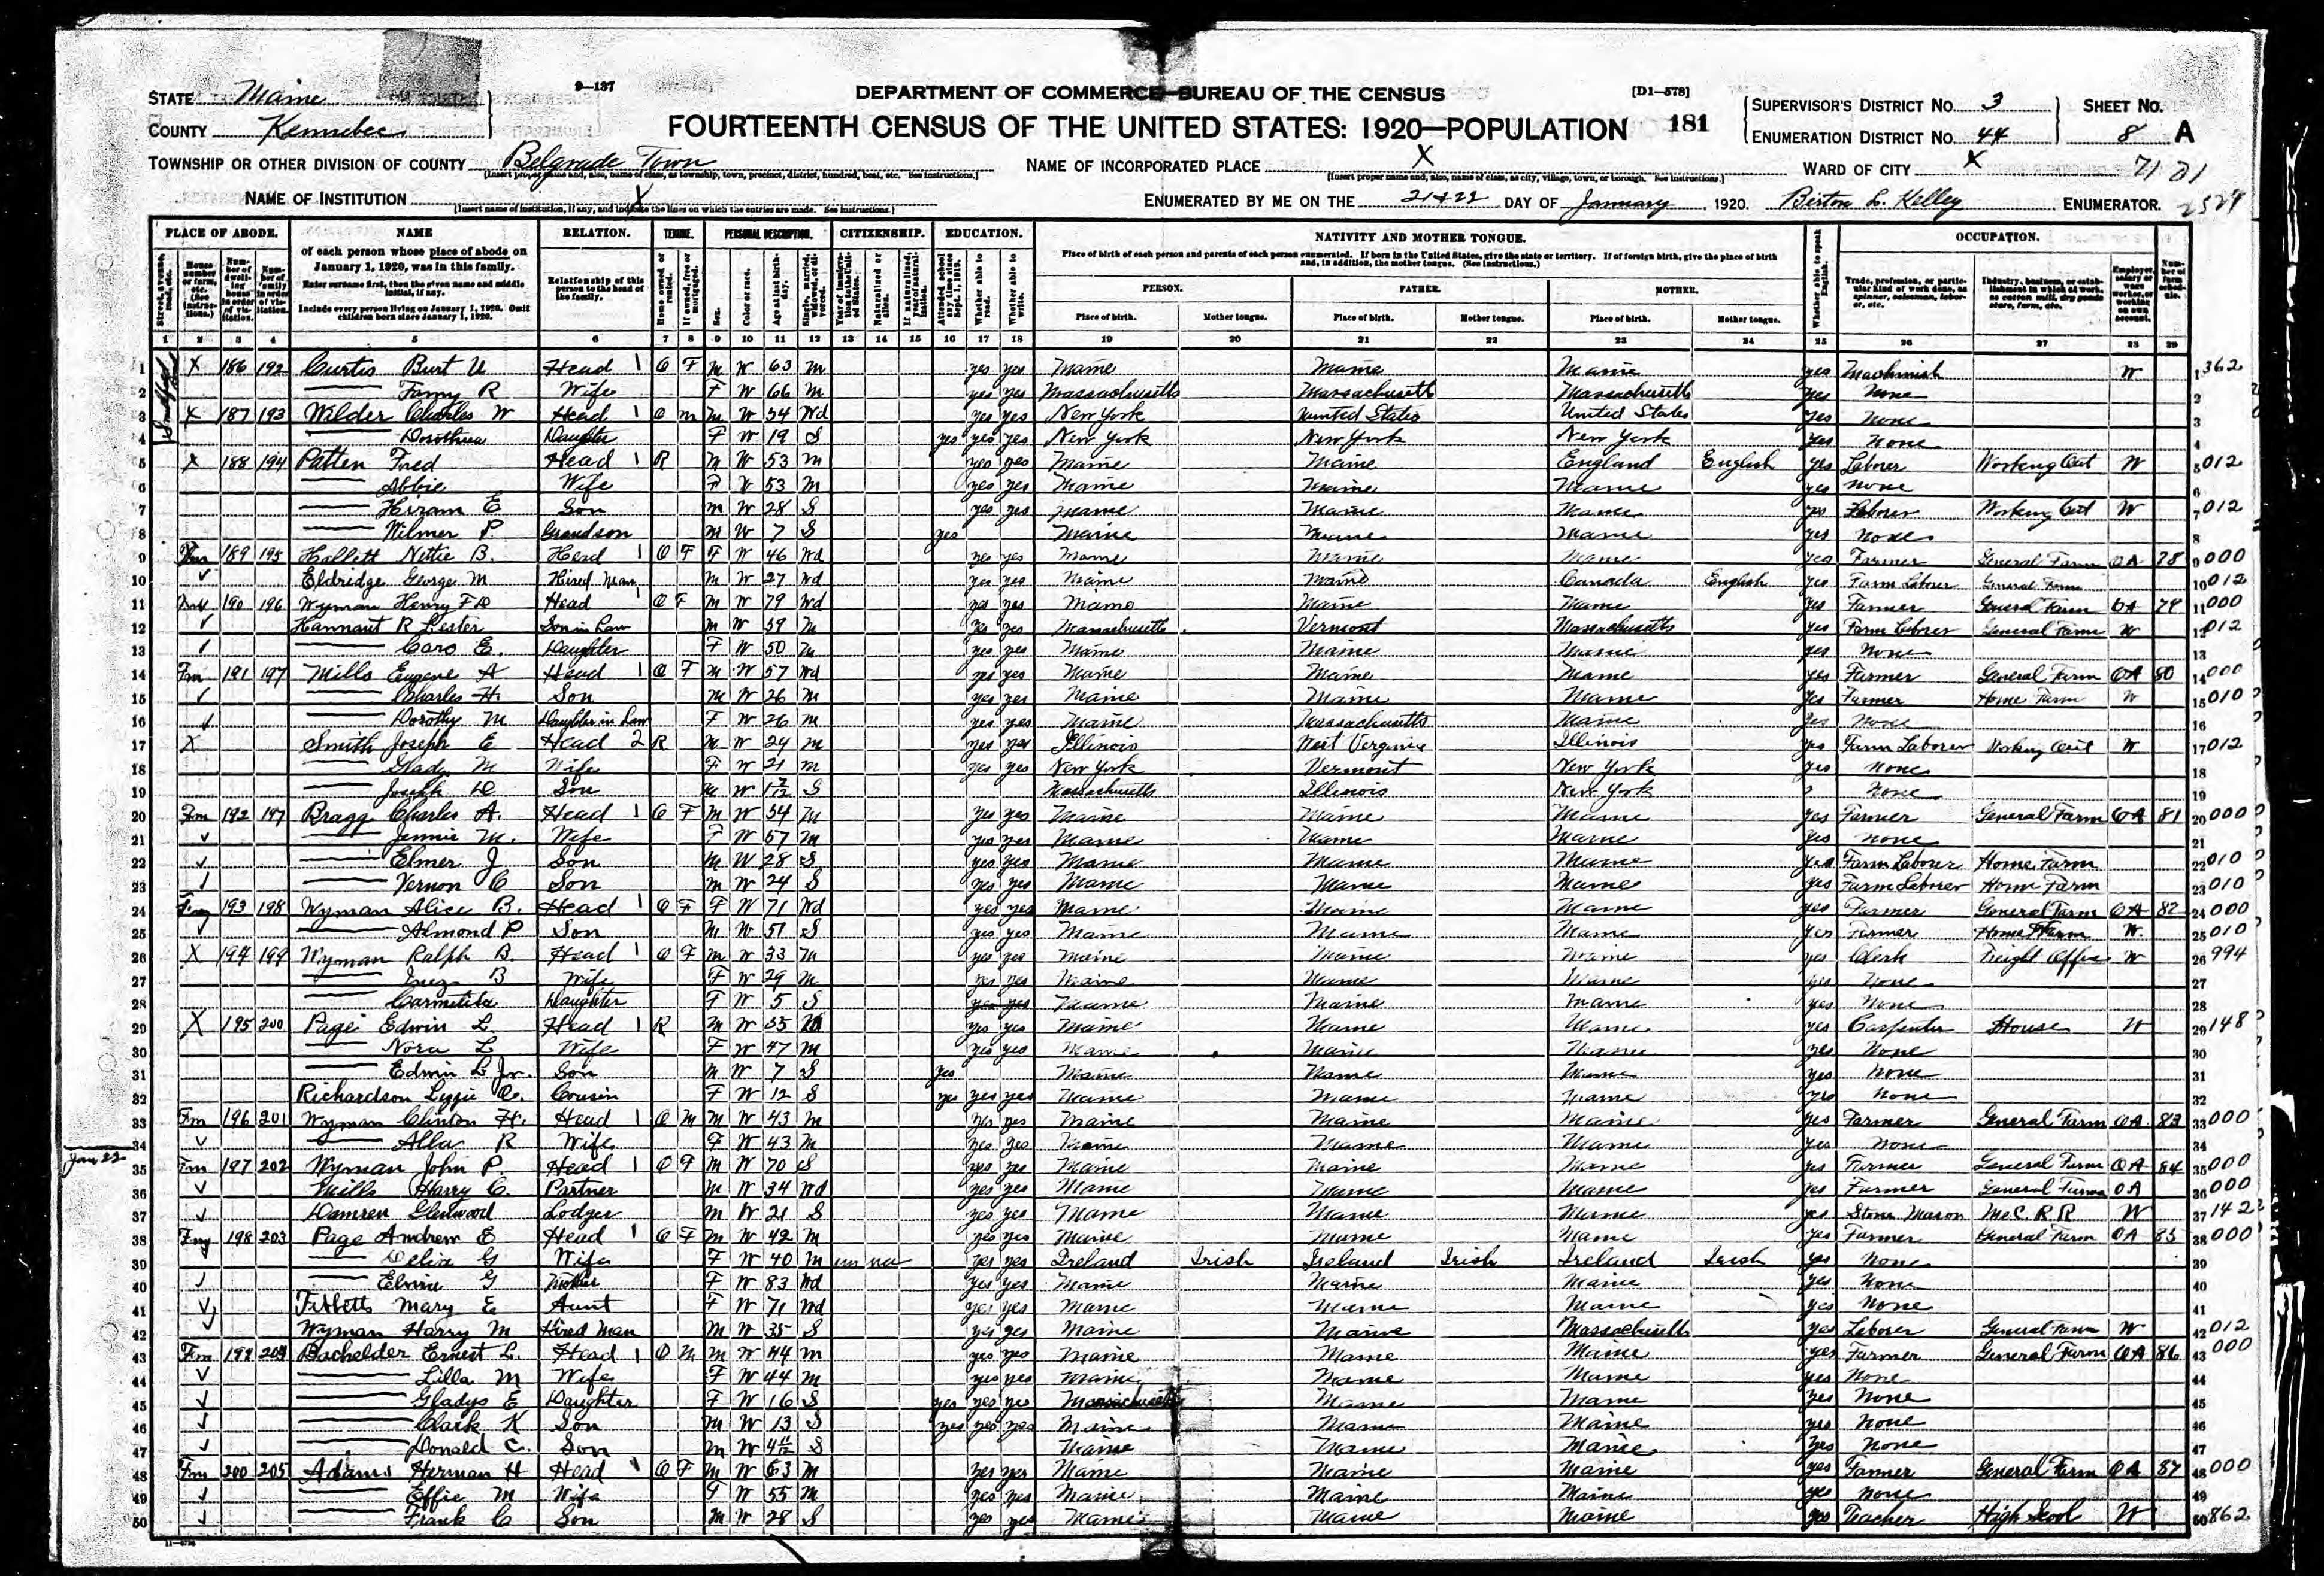 9—137
DEPARTMENT OF COMMERCE—BUREAU OF THE CENSUS
[D1—578]
STATE Maine
COUNTY Kennebec
FOURTEENTH CENSUS OF THE UNITED STATES: 1920—POPULATION 181
SUPERVISOR'S DISTRICT No. 3
ENUMERATION DISTRICT No. 44
SHEET No. 8 A
TOWNSHIP OR OTHER DIVISION OF COUNTY Belgrade Town
NAME OF INCORPORATED PLACE X
WARD OF CITY X
NAME OF INSTITUTION X
ENUMERATED BY ME ON THE 21+22 DAY OF January, 1920. Birton L. Kelley ENUMERATOR.
PLACE OF ABODE. NAME RELATION. TENURE. PERSONAL DESCRIPTION. CITIZENSHIP. EDUCATION. NATIVITY AND MOTHER TONGUE. OCCUPATION.
of each person whose place of abode on January 1, 1920, was in this family.
Enter surname first, then the given name and middle initial, if any.
Include every person living on January 1, 1920. Omit children born since January 1, 1920.
Relationship of this person to the head of the family.
Place of birth of each person and parents of each person enumerated. If born in the United States, give the state or territory. If of foreign birth, give the place of birth and, in addition, the mother tongue. (See Instructions.)
PERSON. FATHER. MOTHER.
Place of birth. Mother tongue. Place of birth. Mother tongue. Place of birth. Mother tongue.
1 2 3 4 5 6 7 8 9 10 11 12 13 14 15 16 17 18 19 20 21 22 23 24 25 26 27 28 29
1 X 186 192 Curtis Burt U Head 1 O F M W 63 M yes yes Maine Maine Maine yes Machinist W 362
2 Fanny R Wife F W 66 M yes yes Massachusetts Massachusetts Massachusetts yes None
3 X 187 193 Wilder Charles W Head 1 O M M W 54 Wd yes yes New York United States United States yes None
4 Dorothea Daughter F W 19 S yes yes yes New York New York New York yes None
5 X 188 194 Patten Fred Head 1 R M W 53 M yes yes Maine Maine England English yes Laborer Working Out W 012
6 Abbie Wife F W 53 M yes yes Maine Maine Maine yes None
7 Hiram E Son M W 28 S yes yes Maine Maine Maine yes Laborer Working Out W 012
8 Wilmer P. Grandson M W 7 S yes Maine Maine Maine yes None
9 Fm 189 195 Hallett Nettie B. Head 1 O F F W 46 Wd yes yes Maine Maine Maine yes Farmer General Farm OA 78 000
10 Eldridge George M Hired Man M W 27 Wd yes yes Maine Maine Canada English yes Farm Laborer General Farm 012
11 Fm 190 196 Wyman Henry F D Head 1 O F M W 79 Wd yes yes Maine Maine Maine yes Farmer General Farm OA 79 000
12 Hannant R Lester Son in Law M W 39 M yes yes Massachusetts Vermont Massachusetts yes Farm Laborer General Farm W 012
13 Caro E. Daughter F W 50 M yes yes Maine Maine Maine yes None
14 Fm 191 197 Mills Eugene A Head 1 O F M W 57 Wd yes yes Maine Maine Maine yes Farmer General Farm OA 80 000
15 Charles H. Son M W 26 M yes yes Maine Maine Maine yes Farmer Home Farm W 010
16 Dorothy M Daughter in Law F W 26 M yes yes Maine Massachusetts Maine yes None
17 X Smith Joseph E Head 2 R M W 24 M yes yes Illinois West Verginia Illinois yes Farm Laborer Working Out W 012
18 Glady M Wife F W 21 M yes yes New York Vermont New York yes None
19 Joseph D Son M W 1 7/12 S Massachusetts Illinois New York None
20 Fm 192 197 Bragg Charles A. Head 1 O F M W 54 M yes yes Maine Maine Maine yes Farmer General Farm OA 81 000
21 Jennie M. Wife F W 57 M yes yes Maine Maine Maine yes None
22 Elmer J Son M W 28 S yes yes Maine Maine Maine yes Farm Laborer Home Farm 010
23 Vernon C Son M W 24 S yes yes Maine Maine Maine yes Farm Laborer Home Farm 010
24 Fm 193 198 Wyman Alice B. Head 1 O F F W 71 Wd yes yes Maine Maine Maine yes Farmer General Farm OA 82 000
25 Almond P Son M W 51 S yes yes Maine Maine Maine yes Farmer Home Farm W 010
26 X 194 199 Wyman Ralph B. Head 1 O F M W 33 M yes yes Maine Maine Maine yes Clerk Freight Office W 994
27 Inez B Wife F W 29 M yes yes Maine Maine Maine yes None
28 Carmelita Daughter F W 5 S yes yes Maine Maine Maine yes None
29 X 195 200 Page Edwin L. Head 1 R M W 55 M yes yes Maine Maine Maine yes Carpenter House W 148
30 Nora L Wife F W 47 M yes yes Maine Maine Maine yes None
31 Edwin L Jr. Son M W 7 S yes Maine Maine Maine yes None
32 Richardson Lizzie Cousin F W 12 S yes yes yes Maine Maine Maine yes None
33 Fm 196 201 Wyman Clinton H. Head 1 O M M W 43 M yes yes Maine Maine Maine yes Farmer General Farm OA 83 000
34 Alla R Wife F W 43 M yes yes Maine Maine Maine yes None
Jan 22 35 Fm 197 202 Wyman John P. Head 1 O F M W 70 S yes yes Maine Maine Maine yes Farmer General Farm OA 84 000
36 Mills Harry C. Partner M W 34 Wd yes yes Maine Maine Maine yes Farmer General Farm OA 000
37 Damren Glenwood Lodger M W 21 S yes yes Maine Maine Maine yes Stone Mason Me C R R W 142
38 Fm 198 203 Page Andrew E Head 1 O F M W 42 M yes yes Maine Maine Maine yes Farmer General Farm OA 85 000
39 Delia G Wife F W 40 M un na yes yes Ireland Irish Ireland Irish Ireland Irish yes None
40 Elvira G Mother F W 83 Wd yes yes Maine Maine Maine yes None
41 Tibbetts Mary E Aunt F W 71 Wd yes yes Maine Maine Maine yes None
42 Wyman Harry M Hired Man M W 35 S yes yes Maine Maine Massachusetts yes Laborer General Farm W 012
43 Fm 199 204 Bachelder Ernest L. Head 1 O M M W 44 M yes yes Maine Maine Maine yes Farmer General Farm OA 86 000
44 Lilla M Wife F W 44 M yes yes Maine Maine Maine yes None
45 Gladys E Daughter F W 16 S yes yes yes Massachusetts Maine Maine yes None
46 Clark K Son M W 13 S yes yes yes Maine Maine Maine yes None
47 Donald C. Son M W 4 11/12 S Maine Maine Maine yes None
48 Fm 200 205 Adams Herman H Head 1 O F M W 63 M yes yes Maine Maine Maine yes Farmer General Farm OA 87 000
49 Effie M Wife F W 55 M yes yes Maine Maine Maine yes None
50 Frank C Son M W 28 S yes yes Maine Maine Maine yes Teacher High Scool W 862